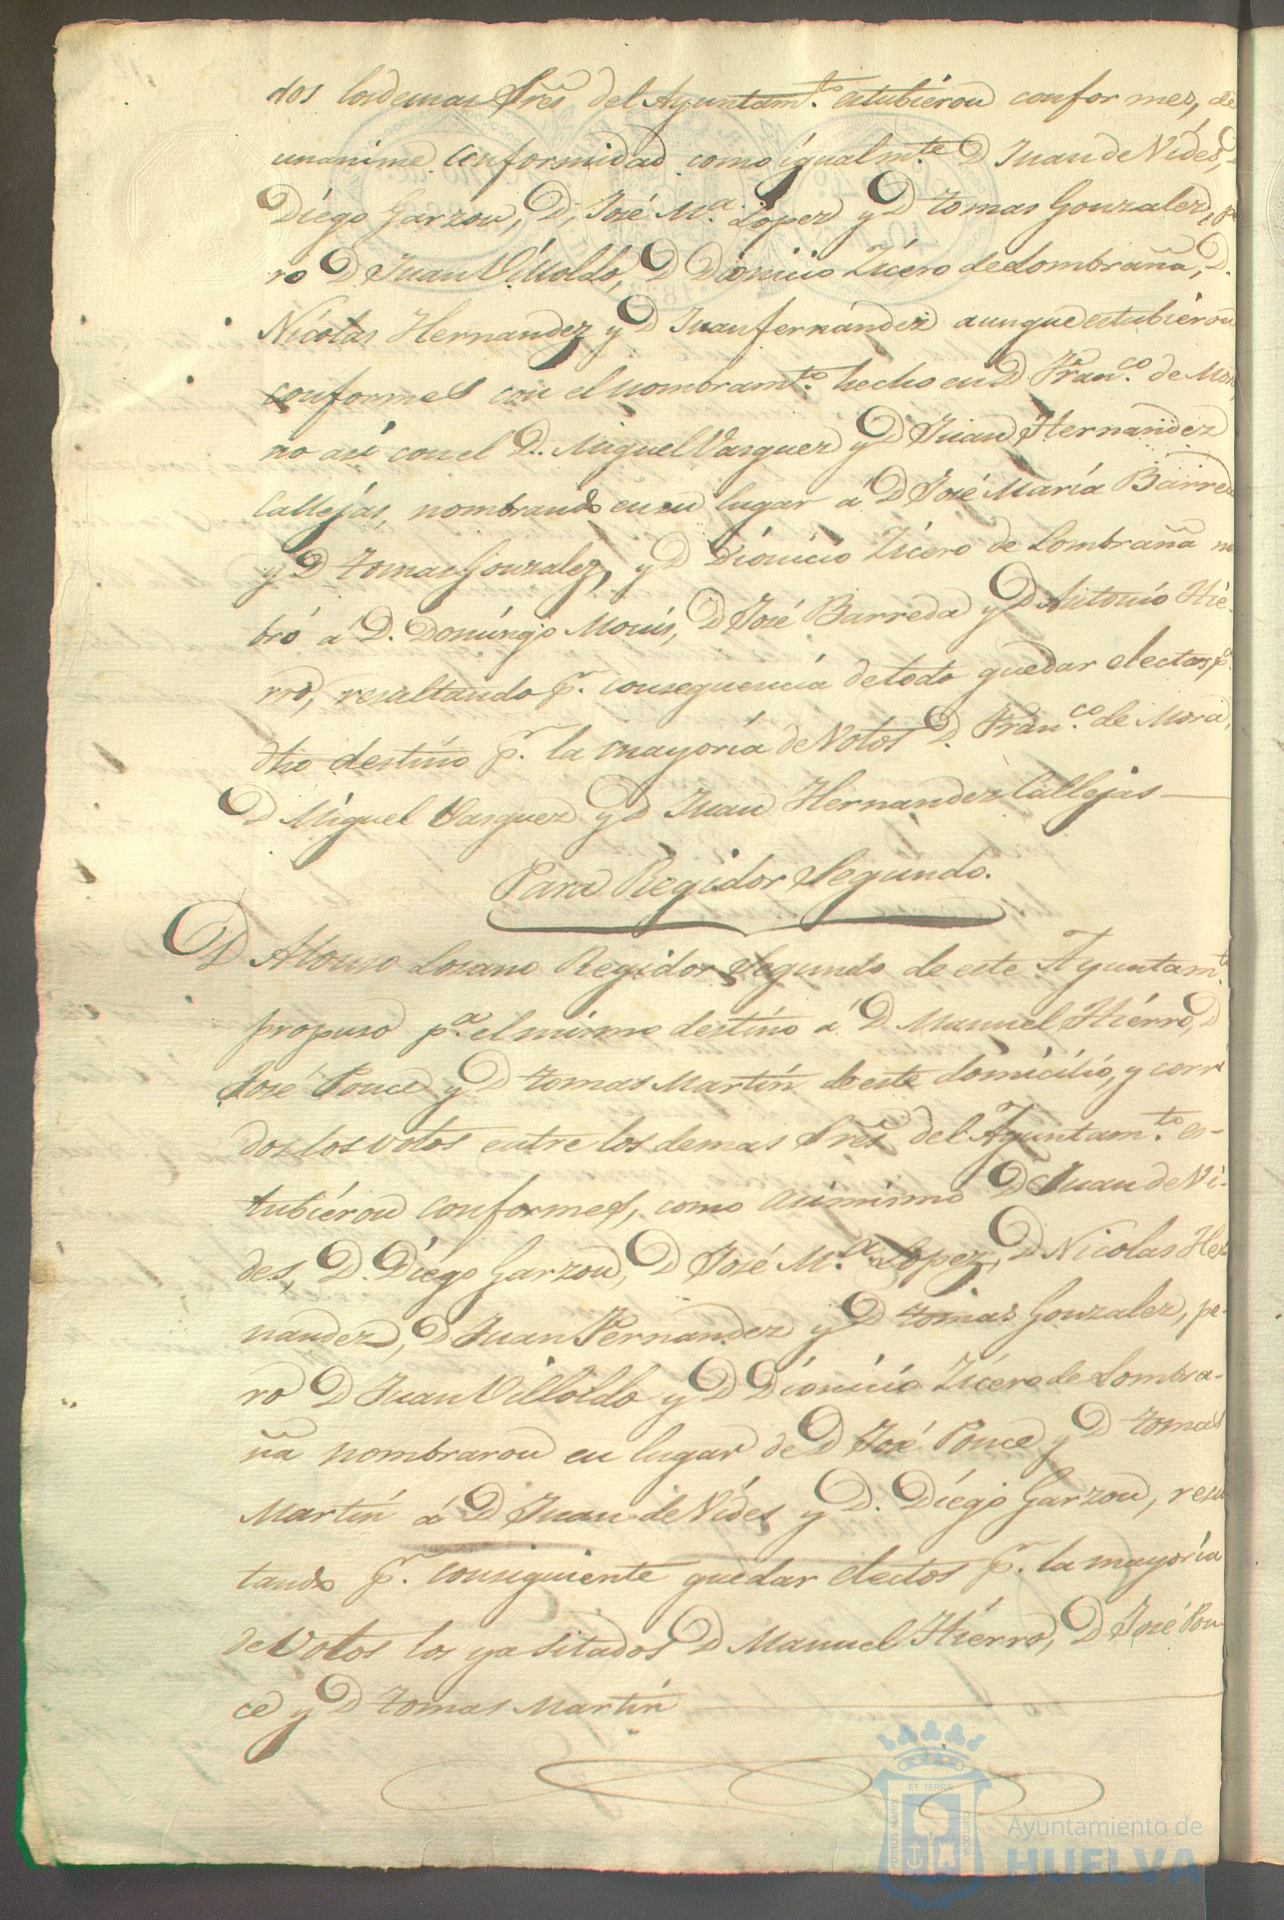 dos losdemas Sres̃ del Ayuntam.to estubieron conformes, de
unanime conformidad como igualm.te D Juan de Vides, D
Diego Garzon, D, José M.a Lopez y D Tomas Gonzalez, pe
ro D Juan Villoldo, D Dionicio Zícero de Lombraña, D.
Nicolas Hernandez y D Juan fernandez aunque estubieron
conformes con el nombram.to hecho en D Fran.co de Mora,
no así con el D. Miguel Vasquez y D Juan Hernandez
Callejas, nombrando en su lugar á D José María Barreda
y D Tomas Gonzalez, y D Dionicio Zícero de Lombraña no
bró á D. Domingo Monis, D José Barreda y D Antonio Hie-
rro, resultando p.r consequencia detodo quedar electos p.a
dho destino p.r la mayoría de Votos D. Fran.co de Mora,
D Miguel Vasquez y D Juan Hernandez Callejas
Para Regidor Segundo.
D Alonso Lozano Regidor Segundo de este Ayuntam.to
propuso p.a el mismo destino á D Manuel Hierro, D
José Ponce y D Tomas Martín de este domicilio, y corri
dos los votos entre los demas Sres̃ del Ayuntam.to es-
tubieron conformes, como asimismo D Juan de Vi-
des, D. Diego Garzon, D José M.a Lopez, D Nicolas Her
nandez, D Juan Fernandez y D Tomas Gonzalez, pe-
ro D Juan Villoldo y D Dionicio Zícero de Lombra-
ña nombraron en lugar de D José Ponce y D Tomas
Martín á D Juan de Vides y D. Diego Garzon, resul
tando p.r consiguiente quedar electos p.r la mayoría
de Votos los ya sitados D Manuel Hierro, D José Pon
ce y D Tomas Martín
ET TERRAE
PORTUS MARIS
CUSTODIA
Ayuntamiento de
HUELVA